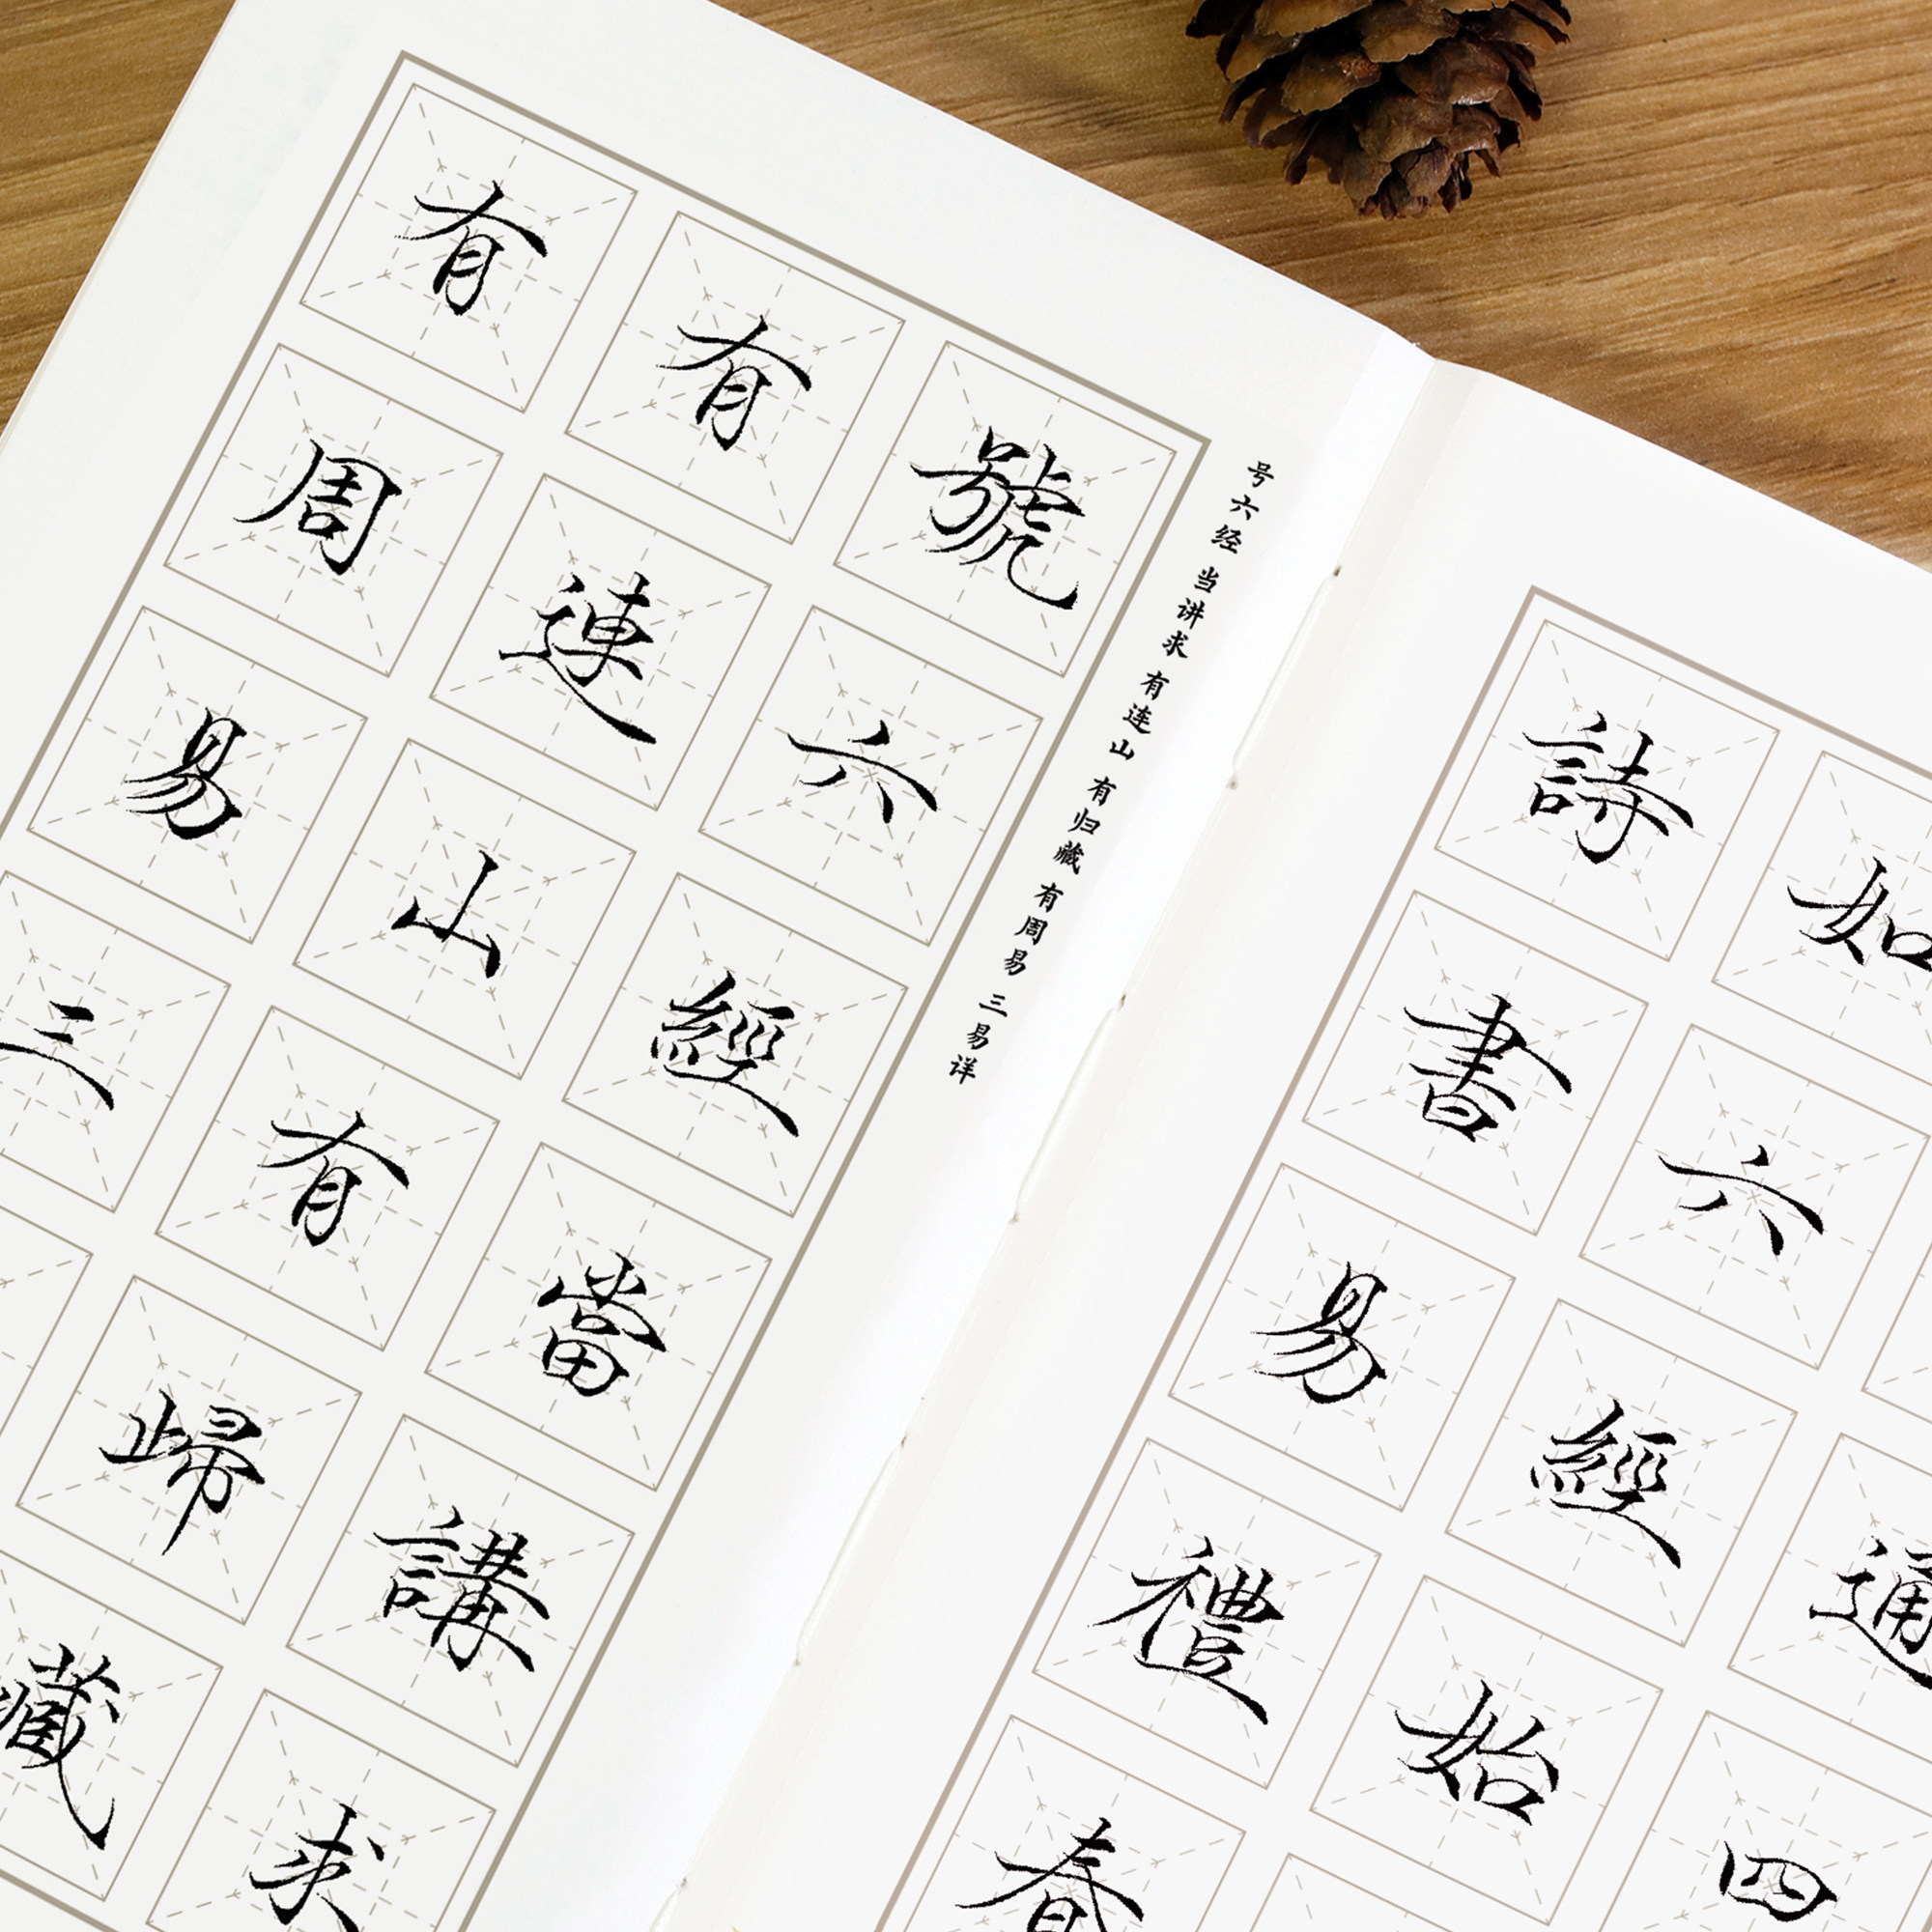 通四
如六經始
詩書易禮春
号六经 当讲求 有连山 有归藏 有周易 三易详
號六經當講求
有連山有歸藏
有周易三